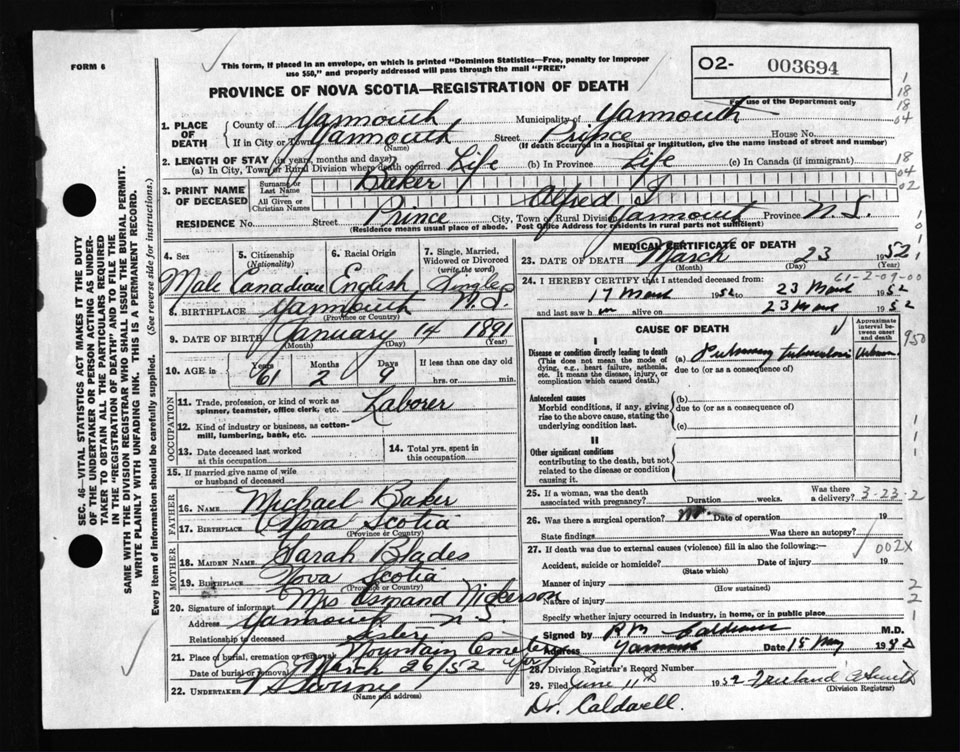 FORM 6
This form, if placed in an envelope, on which is printed "Dominion Statistics—Free, penalty for improper
use $50," and properly addressed will pass through the mail "FREE"
PROVINCE OF NOVA SCOTIA—REGISTRATION OF DEATH
O2- 003694
For use of the Department only
1. PLACE OF DEATH
County of Yarmouth Municipality of Yarmouth
If in City or Town Yarmouth Street Prince House No.
(Name) (If death occurred in a hospital or institution, give the name instead of street and number)
2. LENGTH OF STAY (in years, months and days)
(a) In City, Town or Rural Division where death occurred Life (b) In Province Life (c) In Canada (if immigrant)
3. PRINT NAME OF DECEASED
Surname or Last Name Baker
All Given or Christian Names Alfred J
RESIDENCE No. Street Prince City, Town or Rural Division Yarmouth Province N.S.
(Residence means usual place of abode. Post Office Address for residents in rural parts not sufficient)
4. Sex
Male
5. Citizenship
(Nationality)
Canadian
6. Racial Origin
English
7. Single, Married,
Widowed or Divorced
(write the word)
Single
8. BIRTHPLACE Yarmouth N.S.
(Province or Country)
9. DATE OF BIRTH January 14 1891
(Month) (Day) (Year)
10. AGE in Years 61 Months 2 Days 9 If less than one day old
hrs. or min.
OCCUPATION
11. Trade, profession, or kind of work as
spinner, teamster, office clerk, etc. Laborer
12. Kind of industry or business, as cotton-
mill, lumbering, bank, etc.
13. Date deceased last worked
at this occupation
14. Total yrs. spent in
this occupation
15. If married give name of wife
or husband of deceased
FATHER
16. NAME Michael Baker
17. BIRTHPLACE Nova Scotia
(Province or Country)
MOTHER
18. MAIDEN NAME Sarah Blades
19. BIRTHPLACE Nova Scotia
(Province or Country)
20. Signature of informant Mrs Osmand Nickerson
Address Yarmouth N.S.
Relationship to deceased Sister
21. Place of burial, cremation or removal Mountain Cemetery Yar
Date of burial or removal March 26/52
22. UNDERTAKER
(Name and address)
MEDICAL CERTIFICATE OF DEATH
23. DATE OF DEATH March 23 1952
(Month) (Day) (Year)
24. I HEREBY CERTIFY that I attended deceased from:
17 March 1952 to 23 March 1952
and last saw him alive on 23 March 1952
CAUSE OF DEATH
Approximate interval between onset and death
I
Disease or condition directly leading to death
(This does not mean the mode of
dying, e.g., heart failure, asthenia,
etc. It means the disease, injury, or
complication which caused death.
(a) Pulmonary tuberculosis Unknown
due to (or as a consequence of)
Antecedent causes
Morbid conditions, if any, giving
rise to the above cause, stating the
underlying condition last.
(b)
due to (or as a consequence of)
(c)
II
Other significant conditions
contributing to the death, but not
related to the disease or condition
causing it.
25. If a woman, was the death
associated with pregnancy? Duration weeks. Was there
a delivery? 3-23-2
26. Was there a surgical operation? No. Date of operation 19
State findings Was there an autopsy?
27. If death was due to external causes (violence) fill in also the following:— 002X
Accident, suicide or homicide? Date of injury 19
(State which)
Manner of injury
(How sustained)
Nature of injury
Specify whether injury occurred in industry, in home, or in public place
Signed by R M Caldwell M.D.
Address Yarmouth Date 15 May 1952
28. Division Registrar's Record Number
29. Filed June 11 1952
(Division Registrar)
Dr. Caldwell.
SEC. 46—VITAL STATISTICS ACT MAKES IT THE DUTY
OF THE UNDERTAKER OR PERSON ACTING AS UNDER-
TAKER TO OBTAIN ALL THE PARTICULARS REQUIRED
IN THE "REGISTRATION OF DEATH" AND TO FILE THE
SAME WITH THE DIVISION REGISTRAR WHO SHALL ISSUE THE BURIAL PERMIT.
WRITE PLAINLY WITH UNFADING INK. THIS IS A PERMANENT RECORD.
Every item of information should be carefully supplied. (See reverse side for instructions.)